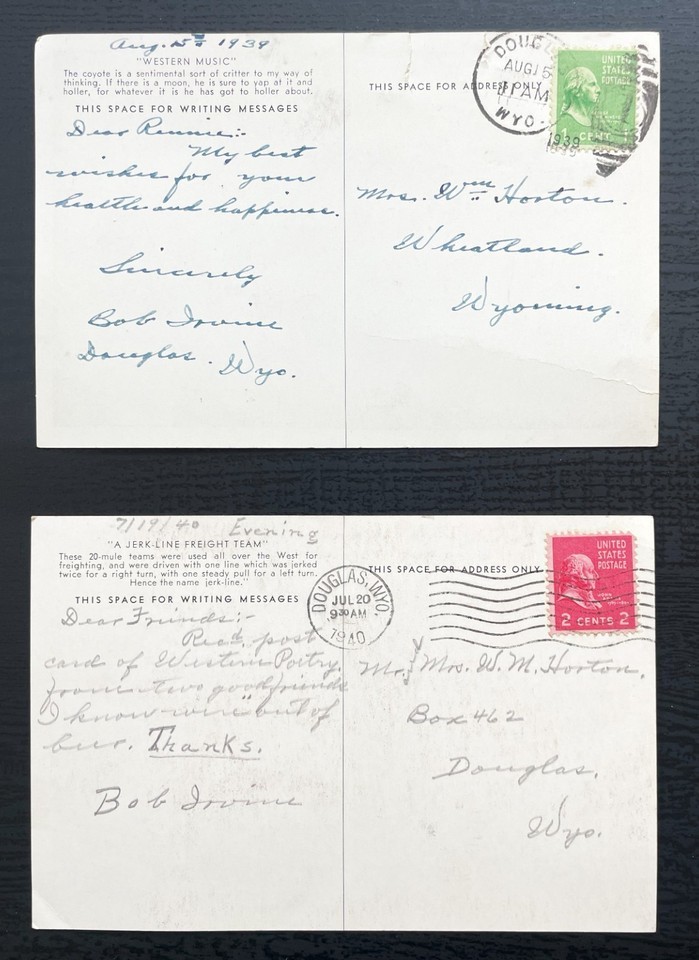 Aug. 15th 1939
"WESTERN MUSIC"
The coyote is a sentimental sort of critter to my way of
thinking. If there is a moon, he is sure to yap at it and
holler, for whatever it is he has got to holler about.
THIS SPACE FOR WRITING MESSAGES
Dear Rennie:-
My best
wishes for your
health and happiness.
Sincerely
Bob Irvine
Douglas. Wyo.
THIS SPACE FOR ADDRESS ONLY
DOUGL
AUG 15
11 AM
WYO.
1939
UNITED
STATES
POSTAGE
1 CENT
Mrs. Wm Horton.
Wheatland.
Wyoming.
7/19/40 Evening
"A JERK-LINE FREIGHT TEAM"
These 20-mule teams were used all over the West for
freighting, and were driven with one line which was jerked
twice for a right turn, with one steady pull for a left turn.
Hence the name jerk-line."
THIS SPACE FOR WRITING MESSAGES
Dear Friends:-
Recd. post
card of Western Poetry.
from two good friends
I know were "out of
beer. Thanks.
Bob Irvine
THIS SPACE FOR ADDRESS ONLY
DOUGLAS, WYO.
JUL 20
9 30 AM
1940
UNITED
STATES
POSTAGE
2 CENTS 2
Mr. & Mrs. W. M. Horton.
Box 462
Douglas.
Wyo.